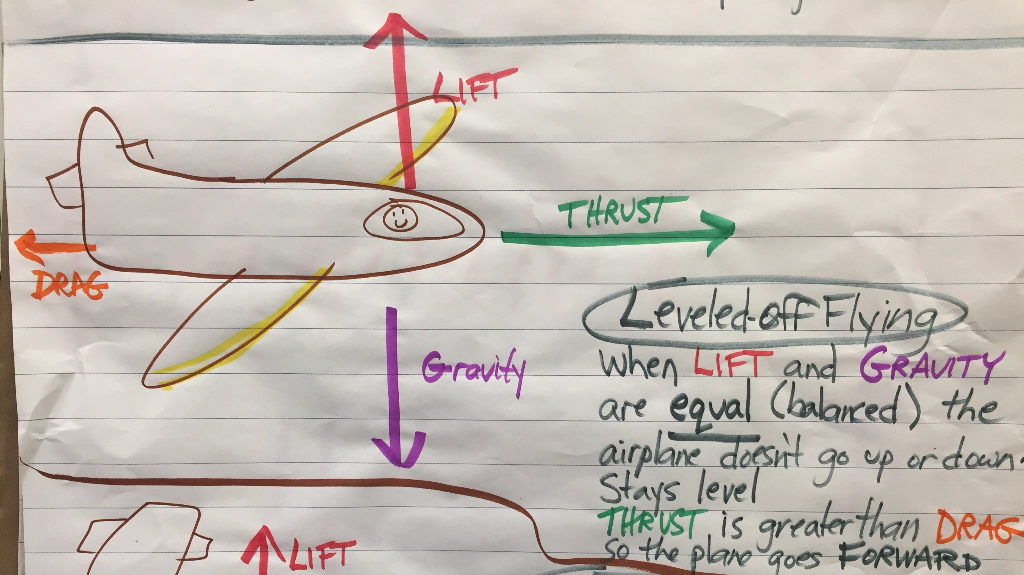 LIFT
THRUST
DRAG
Gravity
Leveled-off Flying
When LIFT and GRAVITY
are equal (balanced) the
airplane doesn't go up or down.
Stays level
THRUST is greater than DRAG
So the plane goes FORWARD
LIFT